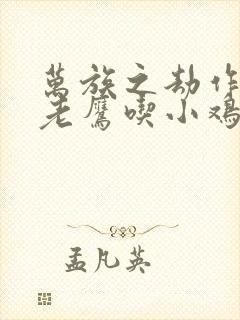 萬族之劫作
老鷹喫小鴉
孟凡英